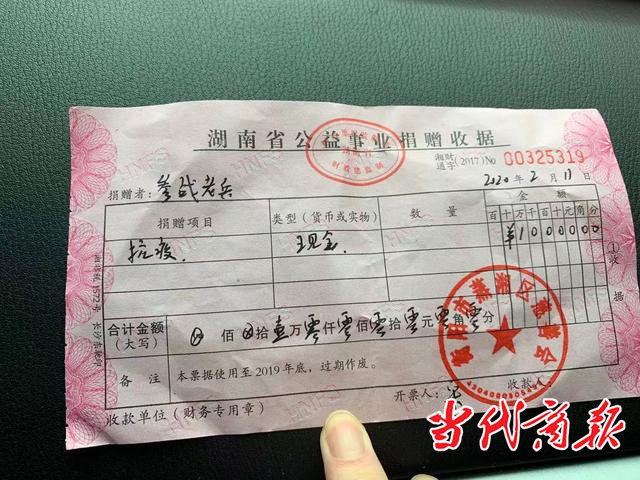 湖南省公益事业捐赠收据
湘财通字(2017) No 00325319
捐赠者: 参战老兵 2020年2月11日
捐赠项目 类型(货币或实物) 数量 金额
百十万千百十元角分
抗疫. 现金. ¥1000000
①收据
合计金额(大写) 佰 拾壹万零仟零佰零拾零元零角零分
备注 本票据使用至2019年底,过期作废。
收款单位(财务专用章) 开票人: 收款人:
当代商报